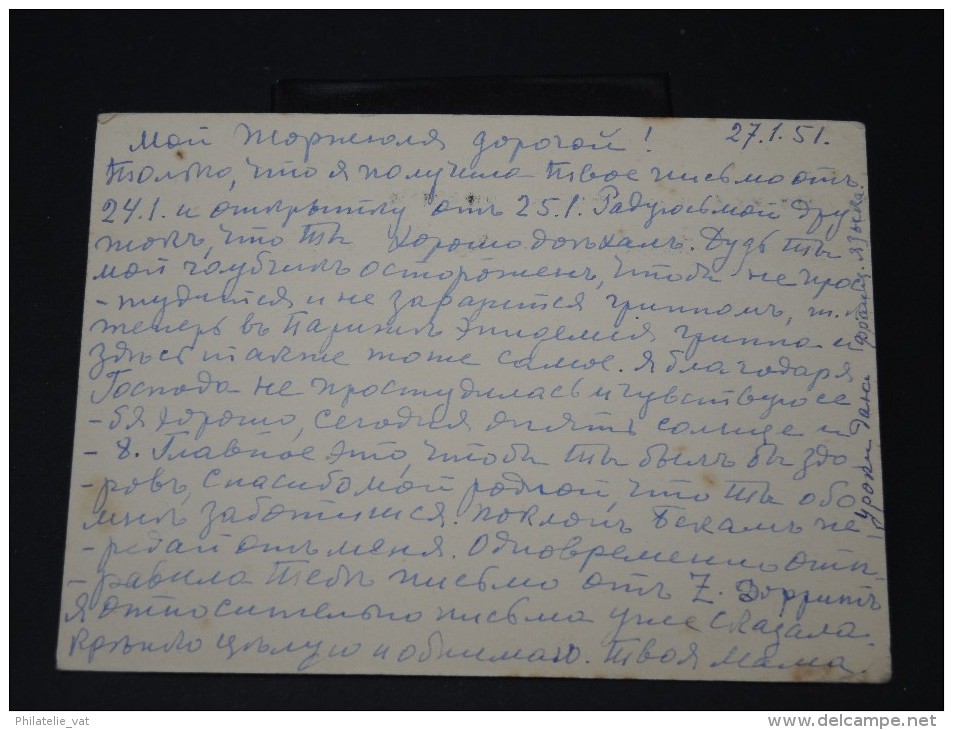 27.1.51.
Мой Жоржюля дорогой!
Только, что я получила твое письмо отъ
24.1. и открытку отъ 25.1. Радуюсь мой дру
жокъ, что ты хорошо доѣхалъ. Будь ты
мой голубчикъ остороженъ, чтобы не прос
-тудился и не заразился гриппомъ, т.к.
теперь въ Парижѣ эпидемія гриппа и
здѣсь также тоже самое. Я благодаря
Господа не простудилась и чувствую се
-бя хорошо, сегодня опять солнце и
- 8. Главное это, чтобы ты былъ бы здо
-ровъ, спасибо мой родной, что ты обо
мнѣ заботишся. Поклонъ Бекамъ пе
-редай отъ меня. Одновременно отп-
-равила тебѣ письмо отъ Z. Дорритъ
я относительно письма уже сказала.
Крѣпко цѣлую и обнимаю. Твоя Мама.
уроки Дана француз. языка.
Philatelie_vat
www.delcampe.net